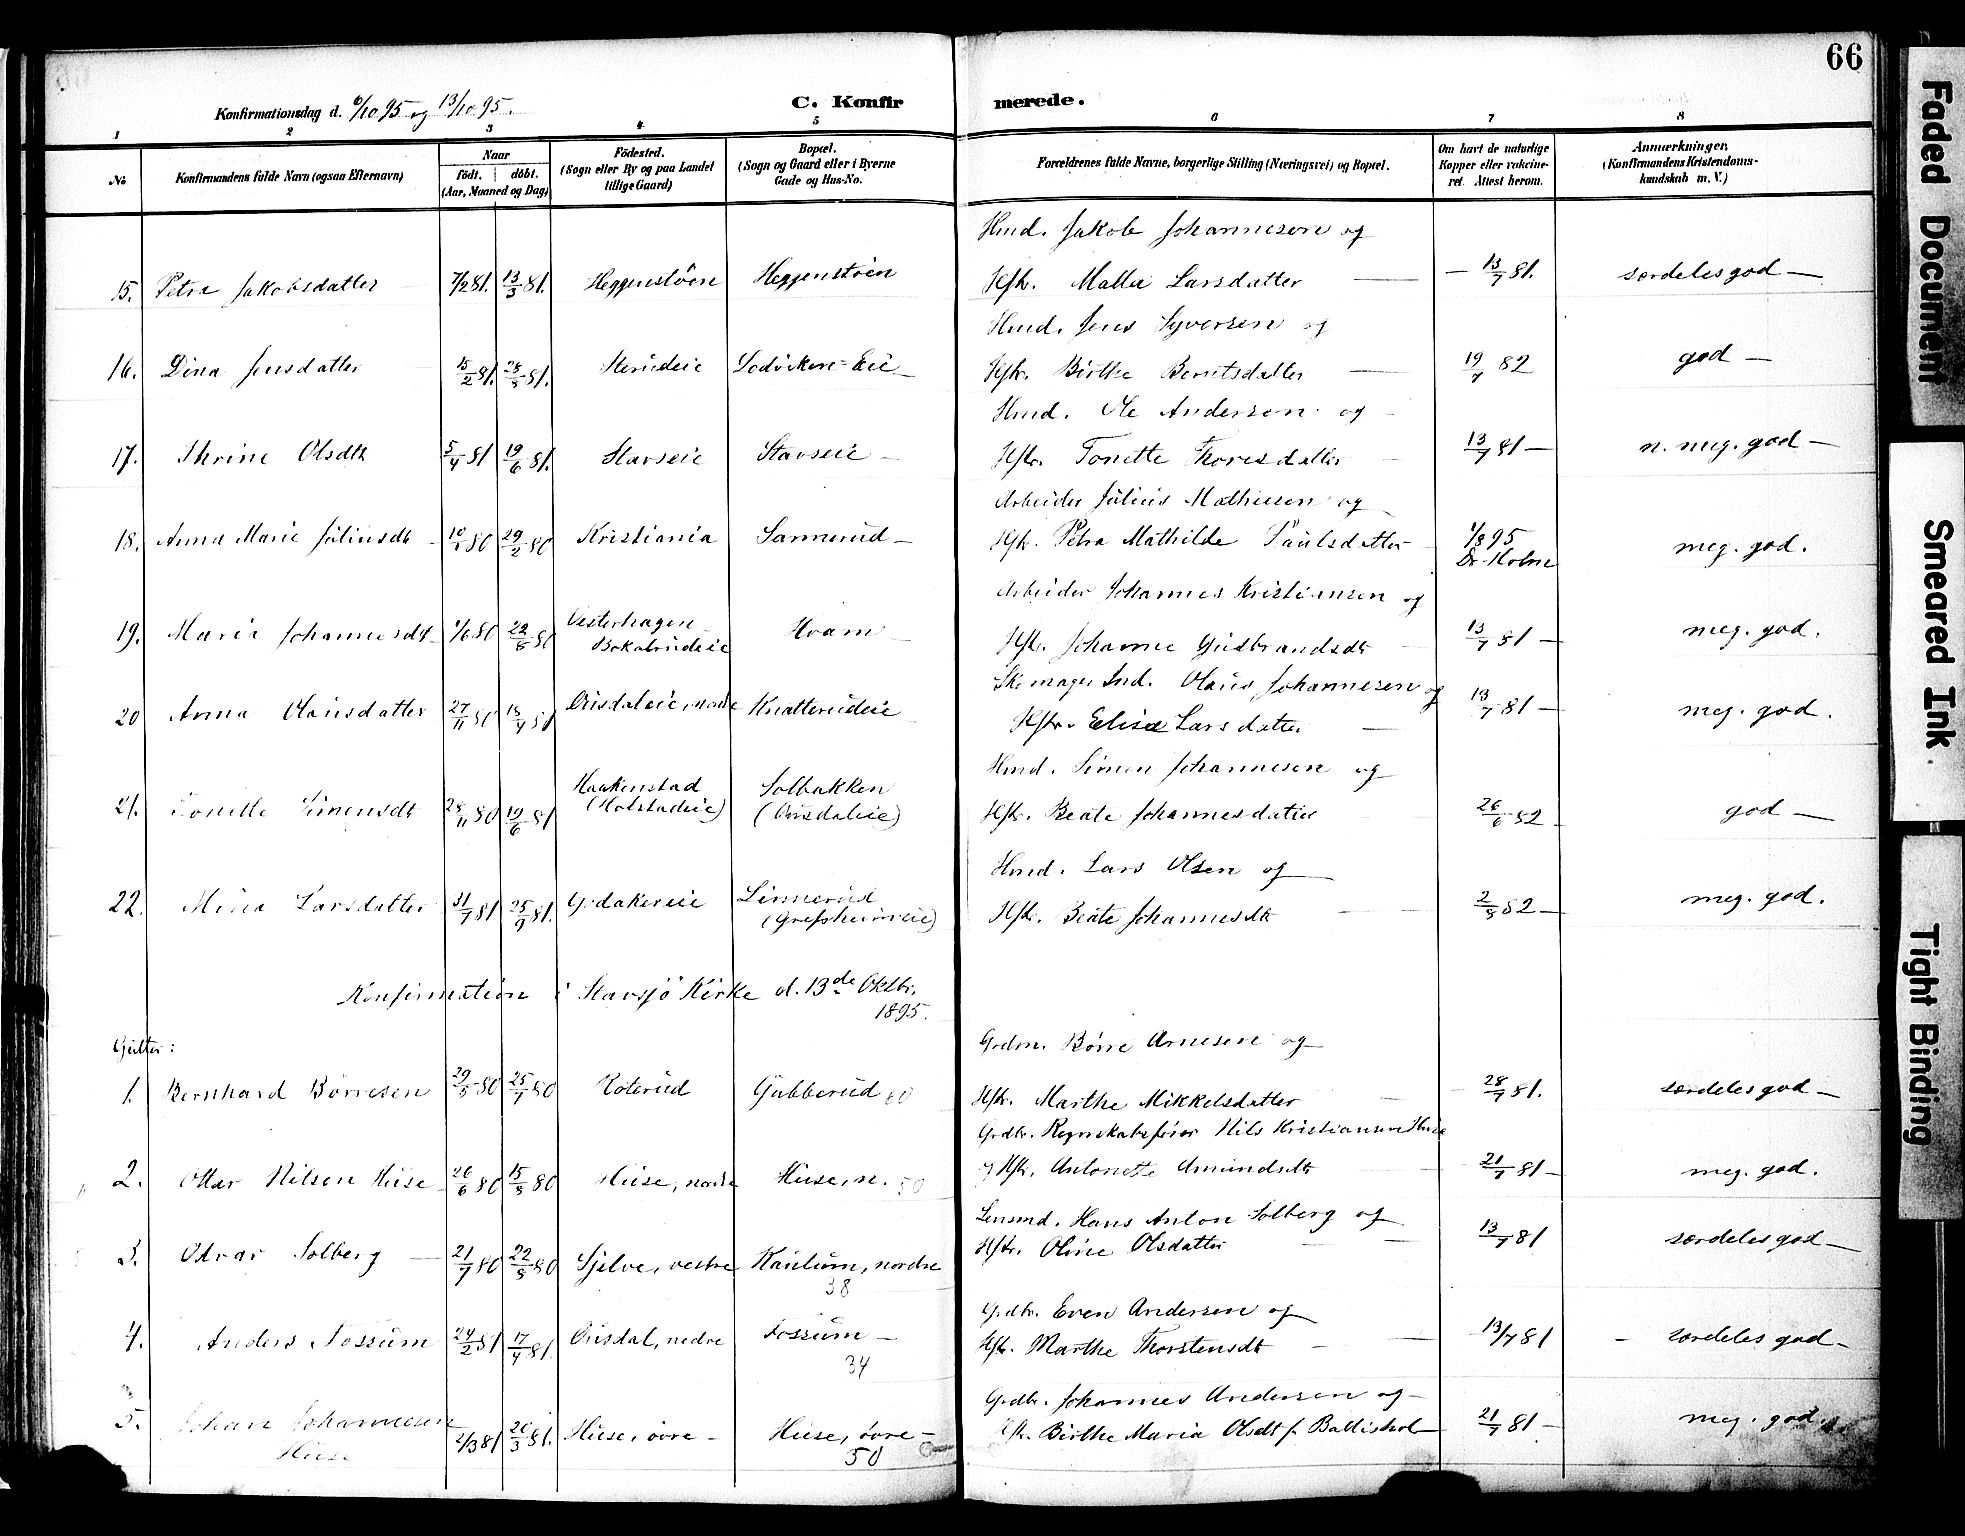 66
Konfirmationsdag d. 6/10 95 og 13/10 95.
C. Konfirmerede.
1 2 3 4 5 6 7 8
No
Konfirmandens fulde Navn (ogsaa Efternavn)
Naar
født. døbt.
(Aar, Maaned og Dag)
Fødested.
(Sogn eller By og paa Landet
tillige Gaard)
Bopæl.
(Sogn og Gaard eller i Byerne
Gade og Hus-No.
Forældrenes fulde Navne, borgerlige Stilling (Næringsvei) og Bopæl.
Om havt de naturlige
Kopper eller vakcine-
ret. Attest herom.
Anmærkninger,
(Konfirmandens Kristendoms-
kundskab m. V.)
Hmd. Jakob Johannesen og
15. Petra Jakobsdatter 7/2 81. 13/3 81. Heggenstøen Heggenstøen Hstr. Mallei Larsdatter — 13/7 81. særdeles god —
Hmd. Jens Syversen og
16. Dina Jensdatter 15/2 81. 28/3 81. Sterudeie Lodviken-Eie Hstr. Birthe Berntsdatter — 19/7 82 god —
Hmd. Ole Andersen og
17. Thrine Olsdtr 5/4 81 19/6 81. Stavseie Stavseie — Hstr. Tonette Thoresdatter 13/7 81 — n. meg. god —
Arbeider Julius Mathiesen og
18. Anna Marie Juliusdtr 10/1 80 29/2 80 Kristiania Sannerud — Hstr. Petra Mathilde Paulsdatter 1/8 95 meg. god.
Dr. Holme
Arbeider Johannes Kristiansen og
19. Maria Johannesdtr 1/6 80 22/8 80 Vesterhagen Hvam — Hstr. Johanne Gudbrandsdtr 13/7 81 — meg. god.
Bakabrudeie
Skomager Ind. Olaus Johannesen og
20 Anna Olausdatter 27/11 80 18/4 81 Onsdaleie, nedre Knatterudeie Hstr. Elise Larsdatter — 13/7 81 — meg. god.
Hmd. Simen Johannesen og
21. Tonette Simensdtr 28/11 80 19/6 81 Haakenstad Solbakken Hstr. Beate Johannesdatter 26/6 82 god —
(Holstadeie) (Onsdaleie)
Hmd. Lars Olsen og
22. Mina Larsdatter 31/7 81 25/9 81. Godakereie Linnerud Hstr. Beate Johannesdtr — 2/8 82 — meg. god.
(Grefsheimeie)
Konfirmation i Stavsjø Kirke d. 13de Oktbr.
1895.
Gutter:
Grdm. Børre Arnesen og
1. Bernhard Børresen 29/5 80 25/7 80 Roterud Gubberud 60 Hstr. Marthe Mikkelsdatter 28/7 81. særdeles god —
Grdbr. Regnskabsfører Nils Kristiansen Huse
2. Ottar Nilsen Huse 26/6 80 15/8 80 Huse, nordre Huse, n. 50 og Hstr. Antonette Amundsdtr 21/7 81 — meg. god.
Lensmd. Hans Anton Solberg og
3. Odvar Solberg — 21/7 80 22/8 80 Gjelve, vestre Kaulum, nordre Hstr. Oline Olsdatter 13/7 81 særdeles god —
38
Grdbr. Even Andersen og
4. Anders Fossum 24/2 81 17/4 81. Onsdal, nedre Fossum — Hstr. Marthe Thorstensdtr — 13/7 81 særdeles god —
34
Grdbr. Johannes Andersen og
5. Johan Johannesen 2/3 81 20/3 81. Huse, øvre — Huse, øvre — Hstr. Birthe Maria Olsdtr f. Ballishol 21/7 81 — meg. god.
Huse 50
Faded Document
Smeared Ink.
Tight Binding